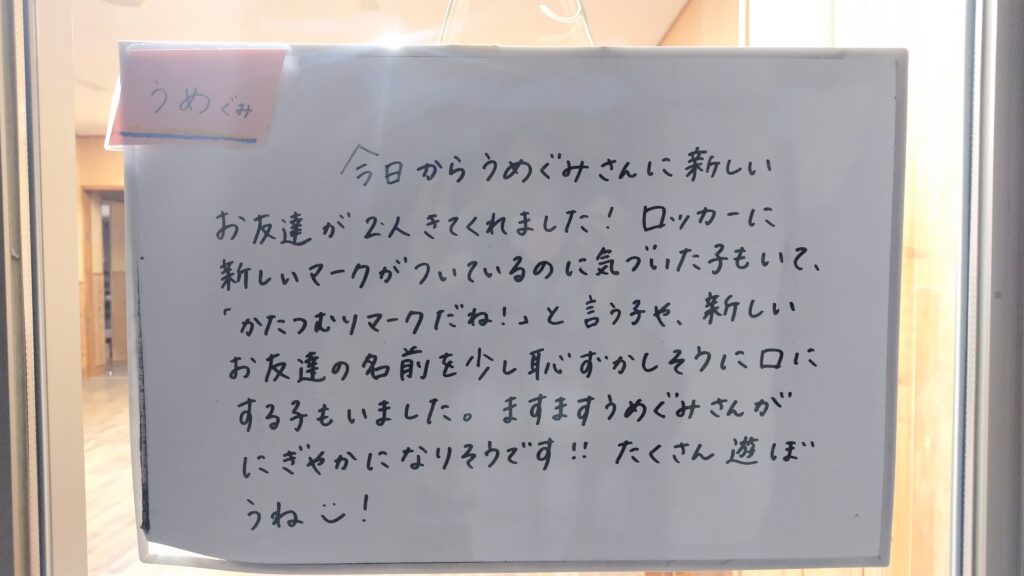 うめぐみ
今日からうめぐみさんに新しい
お友達が2人きてくれました！ ロッカーに
新しいマークがついているのに気づいた子もいて、
「かたつむりマークだね！」と言う子や、新しい
お友達の名前を少し恥ずかしそうに口に
する子もいました。ますますうめぐみさんが
にぎやかになりそうです!! たくさん遊ぼ
うね！